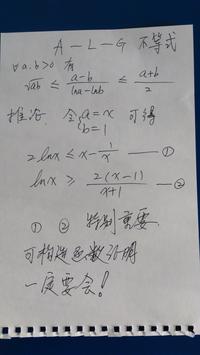 A—L—G 不等式
∀a.b>0 有
√ab ≤ (a-b)/(lna-lnb) ≤ (a+b)/2
推论 令{a=x b=1 可得
2lnx ≤ x-1/x —①
lnx ≥ 2(x-1)/(x+1) —②
① ② 特别重要
可构造函数证明
一定要会！